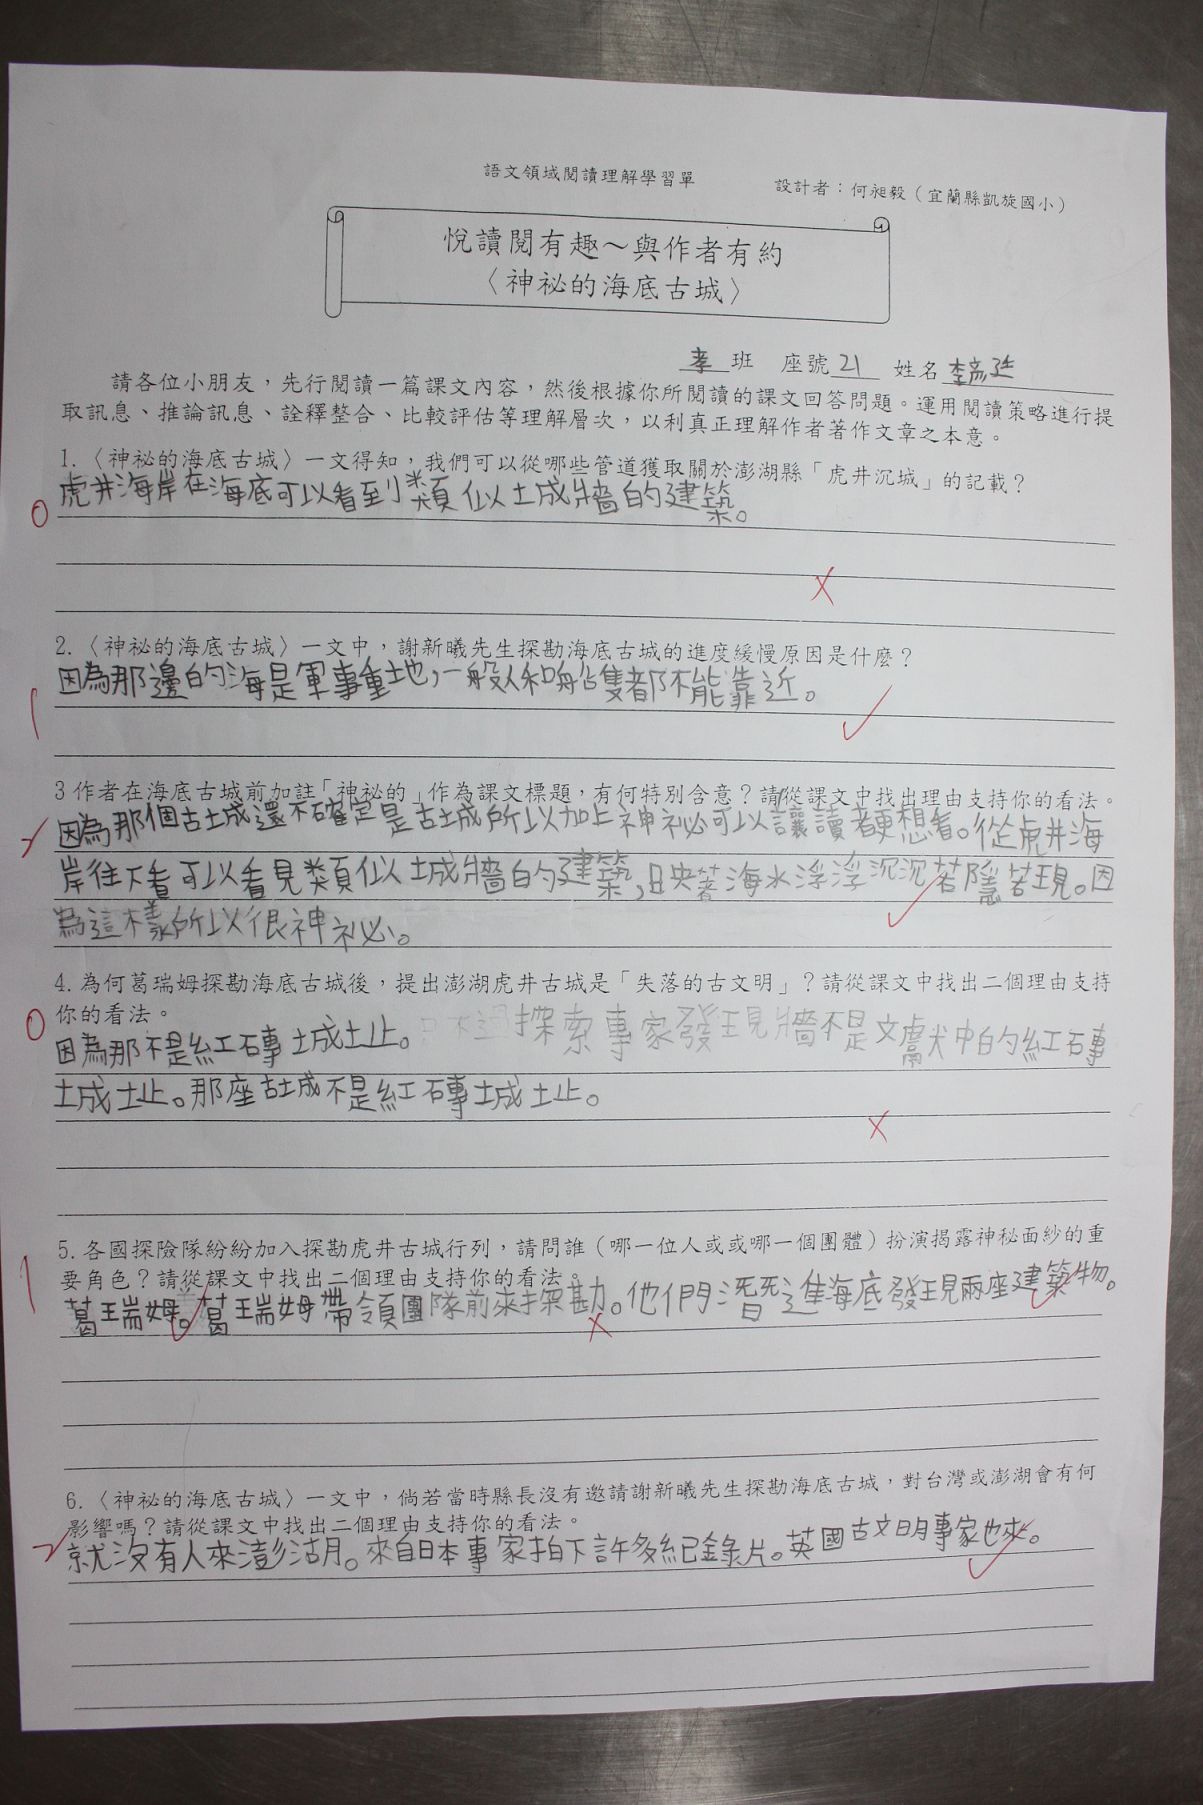 語文領域閱讀理解學習單
設計者：何昶毅（宜蘭縣凱旋國小）
悅讀閱有趣～與作者有約
〈神祕的海底古城〉
孝 班 座號 21 姓名 李彥廷
請各位小朋友，先行閱讀一篇課文內容，然後根據你所閱讀的課文回答問題。運用閱讀策略進行提
取訊息、推論訊息、詮釋整合、比較評估等理解層次，以利真正理解作者著作文章之本意。
1.〈神祕的海底古城〉一文得知，我們可以從哪些管道獲取關於澎湖縣「虎井沉城」的記載？
虎井海岸在海底可以看到類似土成牆的建築。
0
2.〈神祕的海底古城〉一文中，謝新曦先生探勘海底古城的進度緩慢原因是什麼？
因為那邊的海是軍事重地，一般人和船隻都不能靠近。
1
3 作者在海底古城前加註「神祕的」作為課文標題，有何特別含意？請從課文中找出理由支持你的看法。
因為那個古城還不確定是古城所以加上神祕可以讓讀者更想看。從虎井海
岸往下看可以看見類似城牆的建築，且映著海水浮浮沉沉若隱若現。因
為這樣所以很神祕。
4.為何葛瑞姆探勘海底古城後，提出澎湖虎井古城是「失落的古文明」？請從課文中找出二個理由支持
你的看法。
0
因為那不是紅磚城址。只不過探索專家發現牆不是文獻中的紅磚
城址。那座古城不是紅磚城址。
5.各國探險隊紛紛加入探勘虎井古城行列，請問誰（哪一位人或或哪一個團體）扮演揭露神秘面紗的重
要角色？請從課文中找出二個理由支持你的看法。
1
葛瑞姆。葛瑞姆帶領團隊前來探勘。他們潛進海底發現兩座建築物。
6.〈神祕的海底古城〉一文中，倘若當時縣長沒有邀請謝新曦先生探勘海底古城，對台灣或澎湖會有何
影響嗎？請從課文中找出二個理由支持你的看法。
2
就沒有人來澎湖。來自日本專家拍下許多紀錄片。英國古文明專家也來。